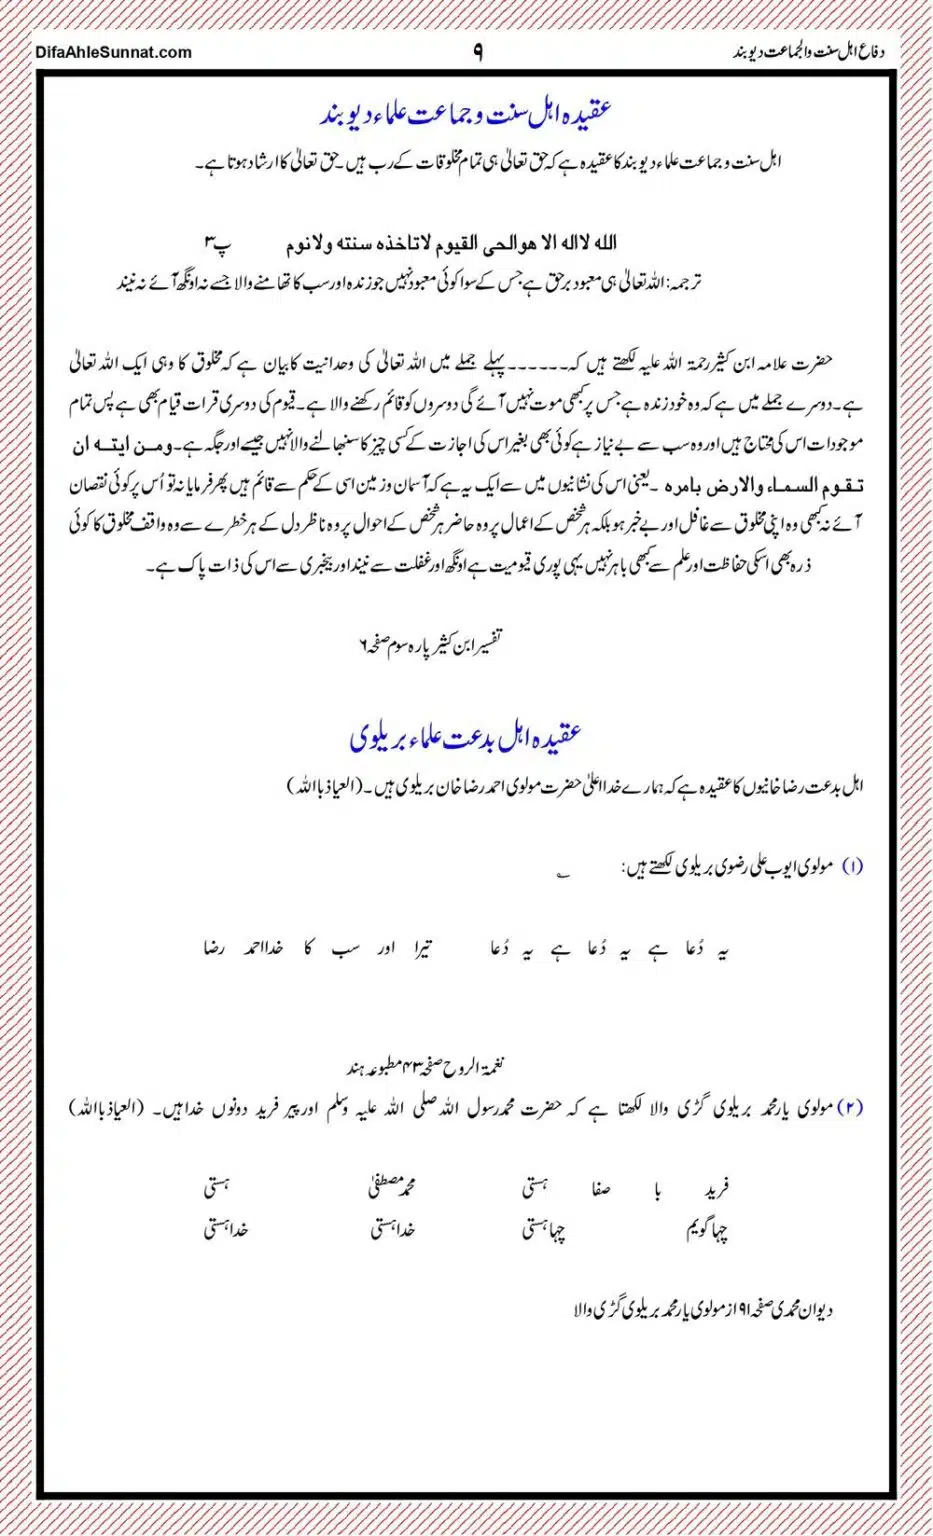 دفاع اہل سنت والجماعت دیوبند ۹ DifaAhleSunnat.com
عقیدہ اہل سنت و جماعت علماء دیوبند
اہل سنت و جماعت علماء دیوبند کا عقیدہ ہے کہ حق تعالیٰ ہی تمام مخلوقات کے رب ہیں۔ حق تعالیٰ کا ارشاد ہوتا ہے۔
الله لااله الا هوالحى القيوم لاتاخذه سنته ولانوم پ۳
ترجمہ: اللہ تعالیٰ ہی معبود برحق ہے جس کے سوا کوئی معبود نہیں جو زندہ اور سب کا تھامنے والا جسے نہ اونگھ آئے نہ نیند
حضرت علامہ ابن کثیر رحمۃ اللہ علیہ لکھتے ہیں کہ۔۔۔۔۔۔پہلے جملے میں اللہ تعالیٰ کی وحدانیت کا بیان ہے کہ مخلوق کا وہی ایک اللہ تعالیٰ
ہے۔ دوسرے جملے میں ہے کہ وہ خود زندہ ہے جس پر کبھی موت نہیں آئے گی دوسروں کو قائم رکھنے والا ہے۔ قیوم کی دوسری قرات قیام بھی ہے پس تمام
موجودات اس کی محتاج ہیں اور وہ سب سے بے نیاز ہے کوئی بھی بغیر اس کی اجازت کے کسی چیز کا سنبھالنے والا نہیں جیسے اور جگہ ہے۔ ومن ايته ان
تقوم السماء والارض بامره ۔ یعنی اس کی نشانیوں میں سے ایک یہ ہے کہ آسمان و زمین اسی کے حکم سے قائم ہیں پھر فرمایا نہ تو اُس پر کوئی نقصان
آئے نہ کبھی وہ اپنی مخلوق سے غافل اور بے خبر ہو بلکہ ہر شخص کے اعمال پر وہ حاضر ہر شخص کے احوال پر وہ ناظر دل کے ہر خطرے سے وہ واقف مخلوق کا کوئی
ذرہ بھی اسکی حفاظت اور علم سے کبھی باہر نہیں یہی پوری قیومیت ہے اونگھ اور غفلت سے نیند اور بیخبری سے اس کی ذات پاک ہے۔
تفسیر ابن کثیر پارہ سوم صفحہ ۶
عقیدہ اہل بدعت علماء بریلوی
اہل بدعت رضا خانیوں کا عقیدہ ہے کہ ہمارے خدا اعلیٰ حضرت مولوی احمد رضا خان بریلوی ہیں۔ (العیاذ باللہ)
(۱) مولوی ایوب علی رضوی بریلوی لکھتے ہیں: ؎
یہ دُعا ہے یہ دُعا ہے یہ دُعا تیرا اور سب کا خدا احمد رضا
نغمۃ الروح صفحہ ۴۳ مطبوعہ ہند
(۲) مولوی یار محمد بریلوی گڑی والا لکھتا ہے کہ حضرت محمد رسول اللہ صلی اللہ علیہ وسلم اور پیر فرید دونوں خدا ہیں۔ (العیاذ باللہ)
فرید با صفا ہستی محمد مصطفیٰ ہستی
چہا گویم چہا ہستی خدا ہستی خدا ہستی
دیوان محمدی صفحہ ۹۱ از مولوی یار محمد بریلوی گڑی والا